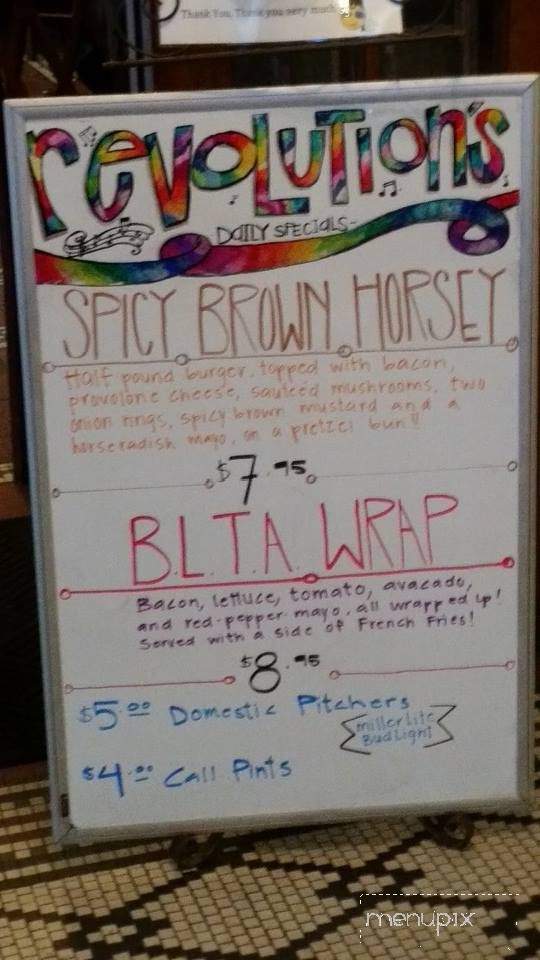 Thank You, Thank you very much
REVOLUTION'S
DAILY SPECIALS-
SPICY BROWN HORSEY
Half pound burger, topped with bacon,
provolone cheese, sauteéd mushrooms, two
onion rings, spicy brown mustard and a
horseradish mayo, on a pretzel bun!!
$7.95
B.L.T.A. WRAP
Bacon, lettuce, tomato, avacado,
and red-pepper mayo, all wrapped up!
Served with a side of French Fries!
$8.95
$5.00 Domestic Pitchers
miller Lite
Bud Light
$4.00 Call Pints
menupix